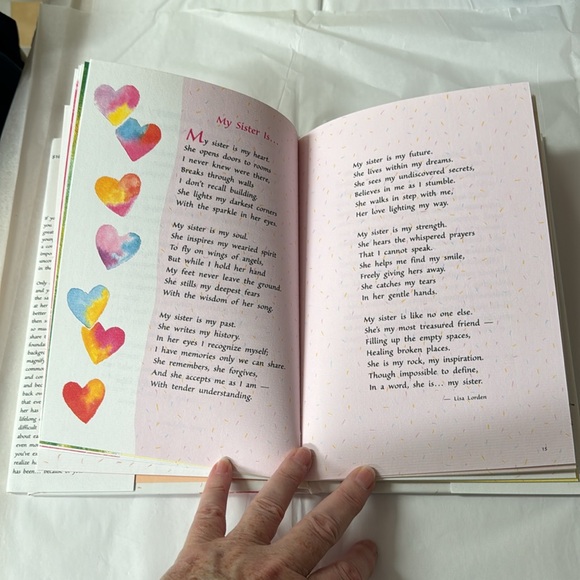 My Sister Is...
My sister is my heart.
She opens doors to rooms
I never knew were there,
Breaks through walls
I don't recall building.
She lights my darkest corners
With the sparkle in her eyes.
My sister is my soul.
She inspires my wearied spirit
To fly on wings of angels,
But while I hold her hand
My feet never leave the ground.
She stills my deepest fears
With the wisdom of her song.
My sister is my past.
She writes my history.
In her eyes I recognize myself;
I have memories only we can share.
She remembers, she forgives,
And she accepts me as I am —
With tender understanding.
My sister is my future.
She lives within my dreams.
She sees my undiscovered secrets,
Believes in me as I stumble.
She walks in step with me,
Her love lighting my way.
My sister is my strength.
She hears the whispered prayers
That I cannot speak.
She helps me find my smile,
Freely giving hers away.
She catches my tears
In her gentle hands.
My sister is like no one else.
She's my most treasured friend —
Filling up the empty spaces,
Healing broken places.
She is my rock, my inspiration.
Though impossible to define,
In a word, she is... my sister.
— Lisa Lorden